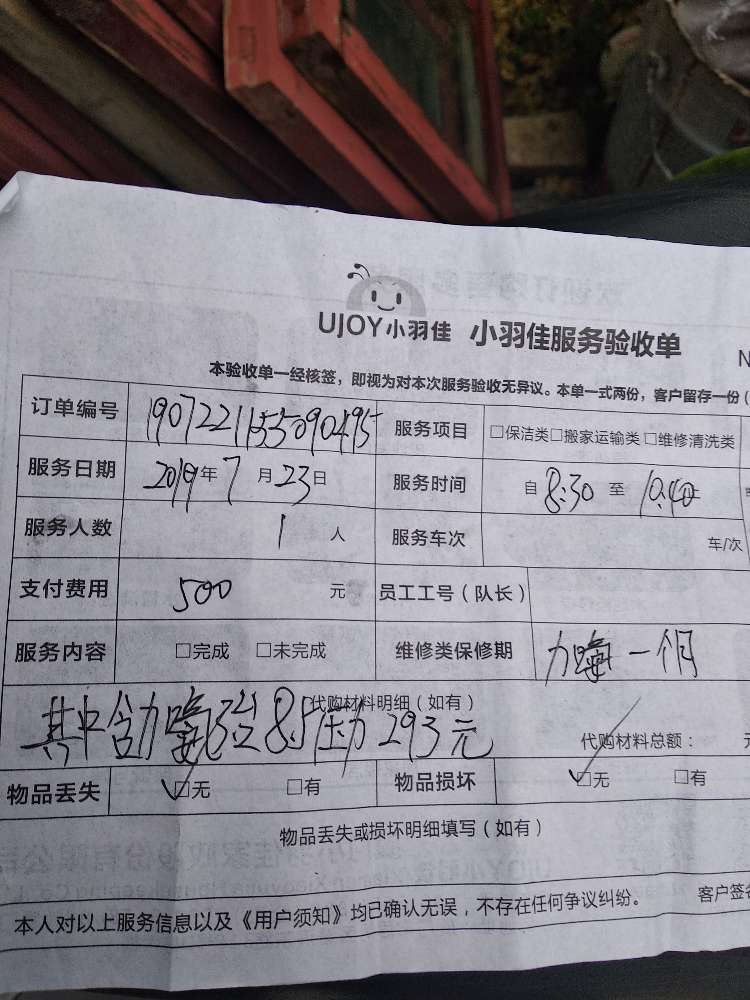 UJOY小羽佳 小羽佳服务验收单
N
本验收单一经核签，即视为对本次服务验收无异议。本单一式两份，客户留存一份（
订单编号 服务项目 □保洁类□搬家运输类□维修清洗类
服务日期 2019年7月23日 服务时间 自8:30至10:40
服务人数 1人 服务车次 车/次
支付费用 500元 员工工号（队长）
服务内容 □完成 □未完成 维修类保修期 一个月
代购材料明细（如有）
其中含 8.5压力293元
代购材料总额： 元
物品丢失 ☑无 □有 物品损坏 ☑无 □有
物品丢失或损坏明细填写（如有）
本人对以上服务信息以及《用户须知》均已确认无误，不存在任何争议纠纷。 客户签名